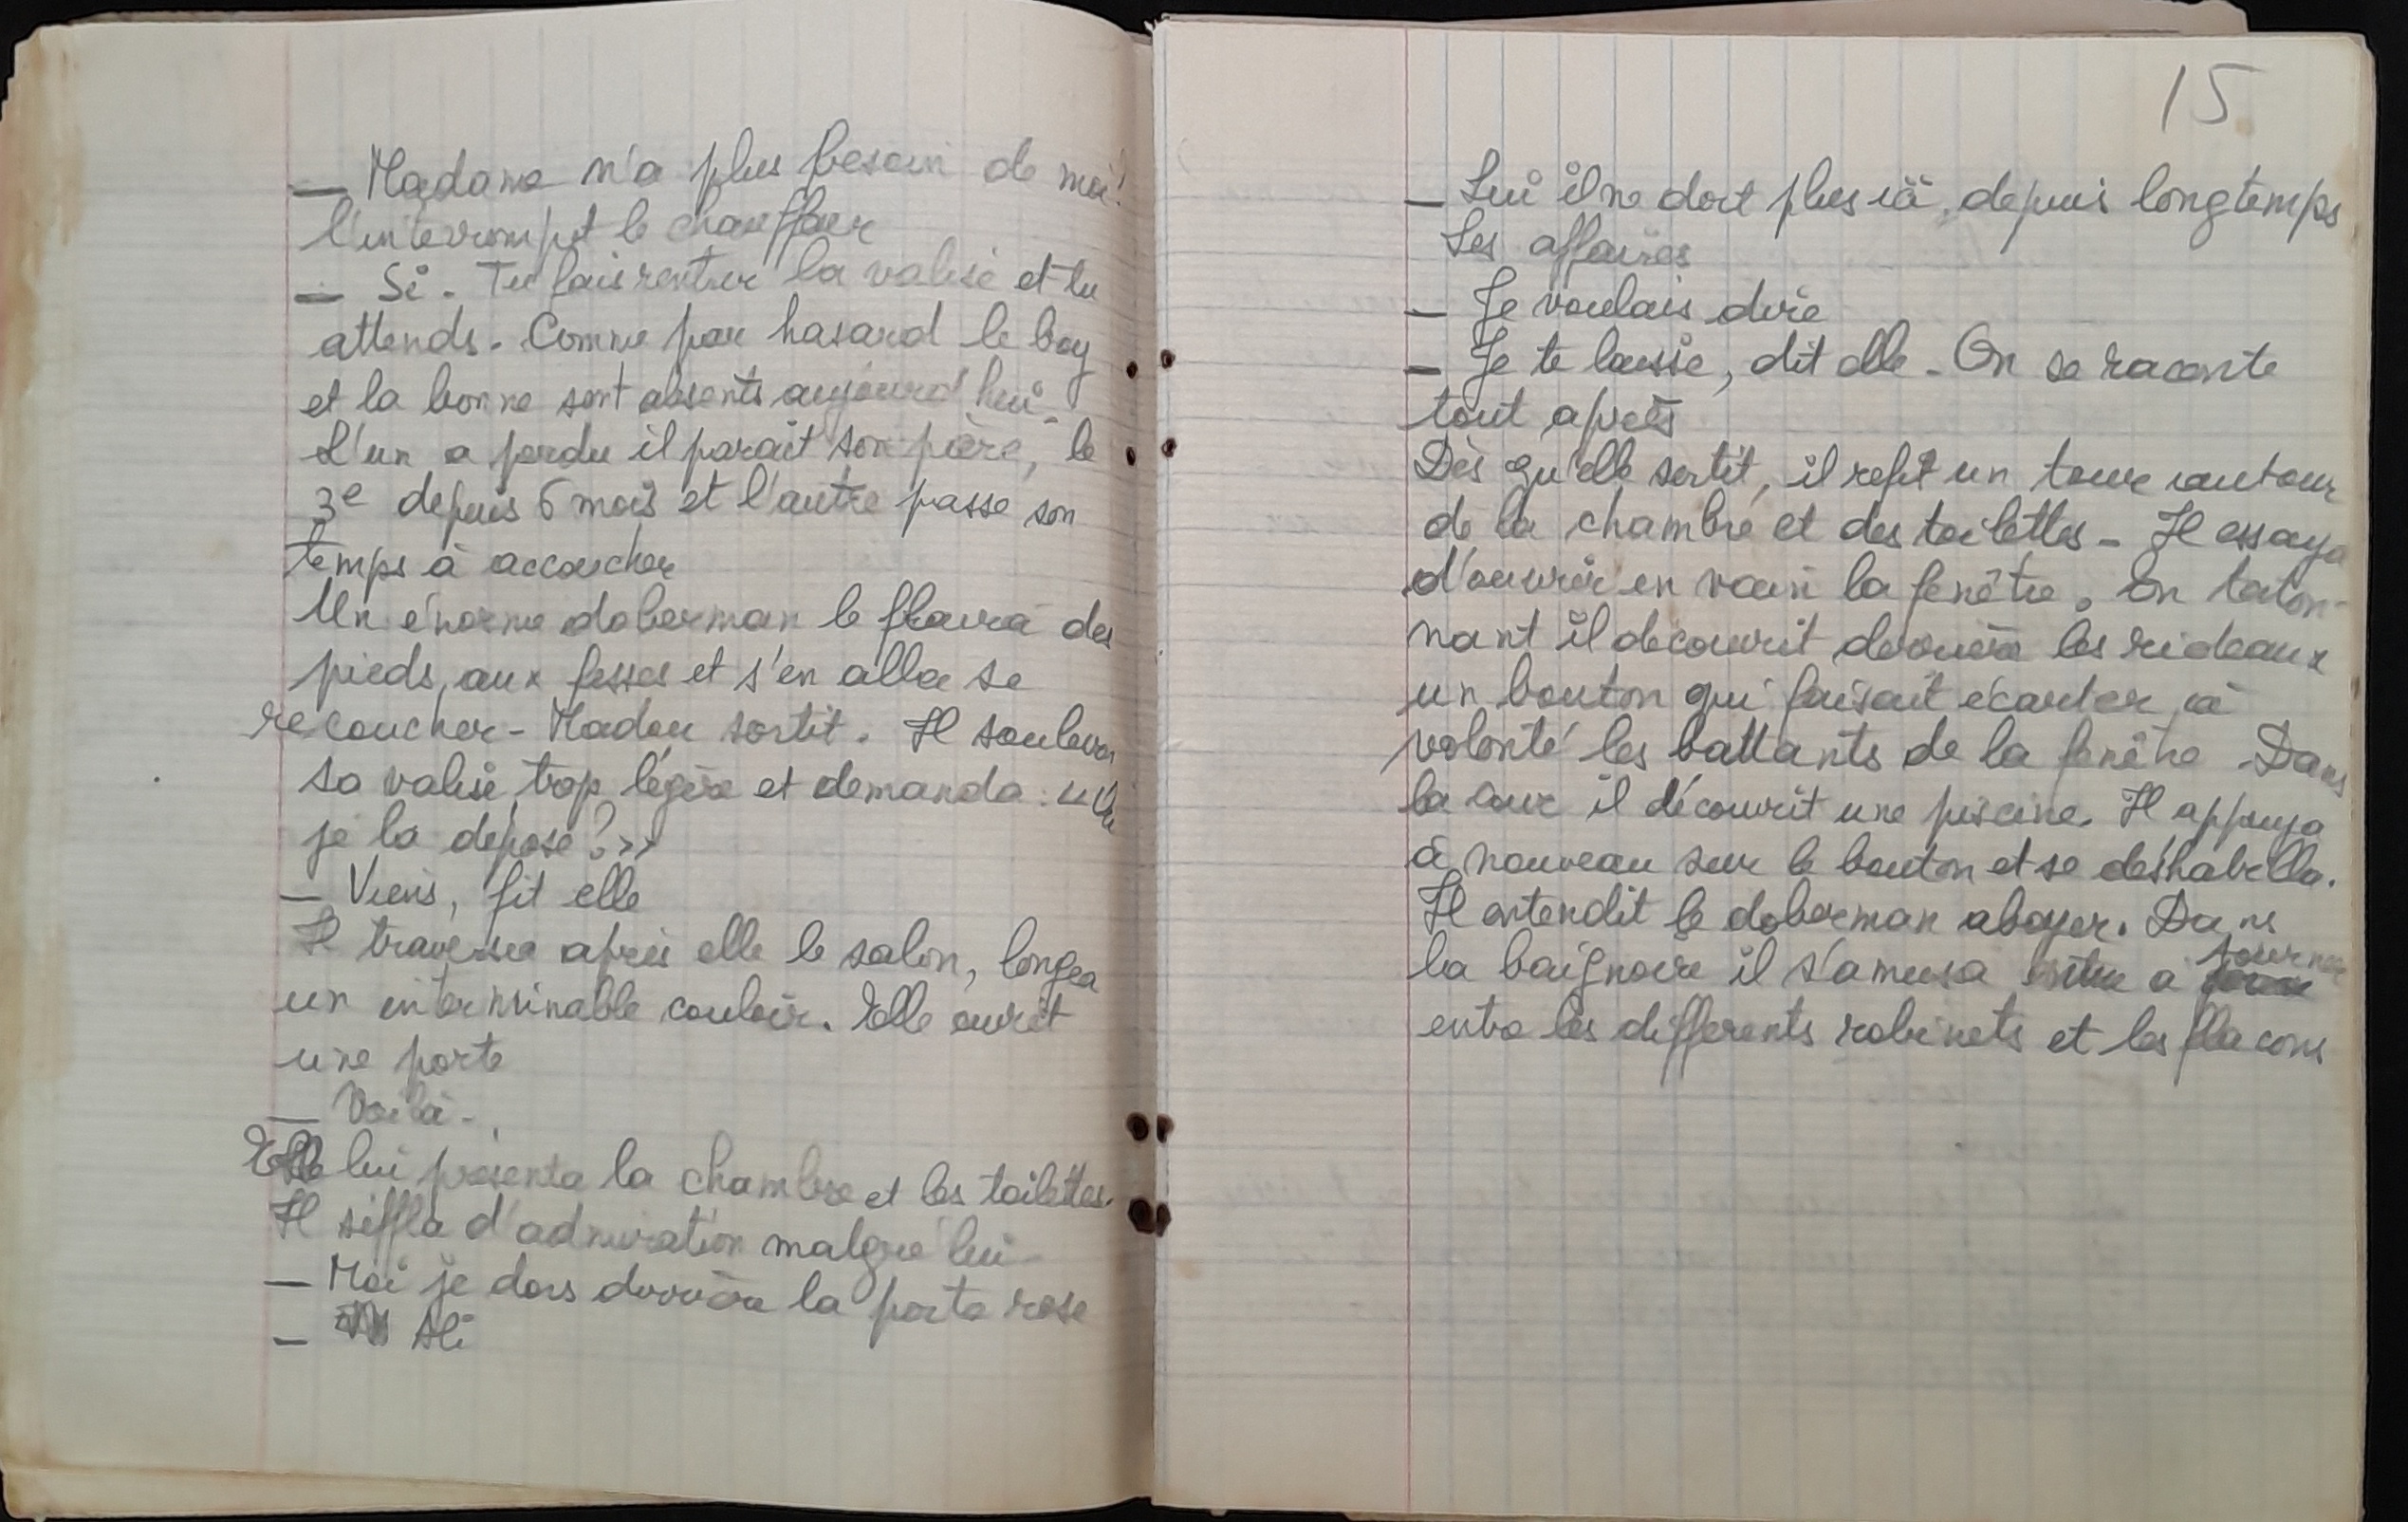 — Madame n'a plus besoin de moi!
l'interrompit le chauffeur
— Si. Tu fais rentrer la valise et tu
attends. Comme par hasard le boy
et la bonne sont absents aujourd'hui.
L'un a perdu il parait son père, le
3e depuis 6 mois et l'autre passe son
temps à accoucher
Un énorme doberman le flaira des
pieds aux fesses et s'en alla se
recoucher - Madou sortit. Il souleva
sa valise trop légère et demanda : "Où
je la dépose?"
— Viens, fit elle
Il traversa après elle le salon, longea
un interminable couloir. Elle ouvrit
une porte
— Voilà.
Elle lui présenta la chambre et les toilettes.
Il siffla d'admiration malgré lui
— Moi je dors derrière la porte rose
— Ali
15
— Lui il ne dort plus ià depuis longtemps
Les affaires
— Je voulais dire
— Je te laisse, dit elle - On se raconte
tout après
Dès qu'elle sortit, il refit un tour autour
de la chambre et des toilettes - Il essaya
d'ouvrir en vain la fenêtre. En taton-
nant il découvrit derrière les rideaux
un bouton qui faisait écarter à
volonté les battants de la fenêtre - Dans
la cour il découvrit une piscine. Il appuya
à nouveau sur le bouton et se déshabilla.
Il entendit le doberman aboyer. Dans
la baignoire il s'amusa entre a tourner
entre les differents robinets et les flacons